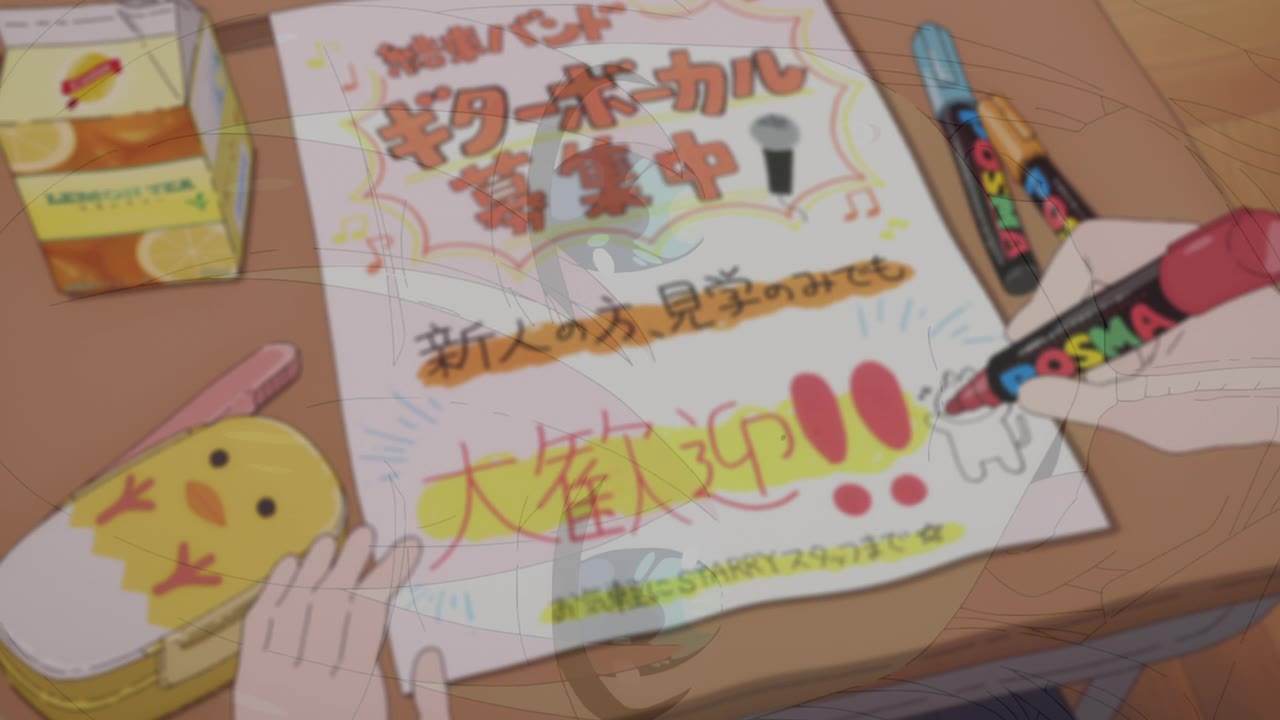 結束バンド
ギターボーカル
募集中
新人の方、見学のみでも
大歓迎!!
お気軽にSTARRYスタッフまで☆
LEMON TEA
POSMA
POSMA
POSMA